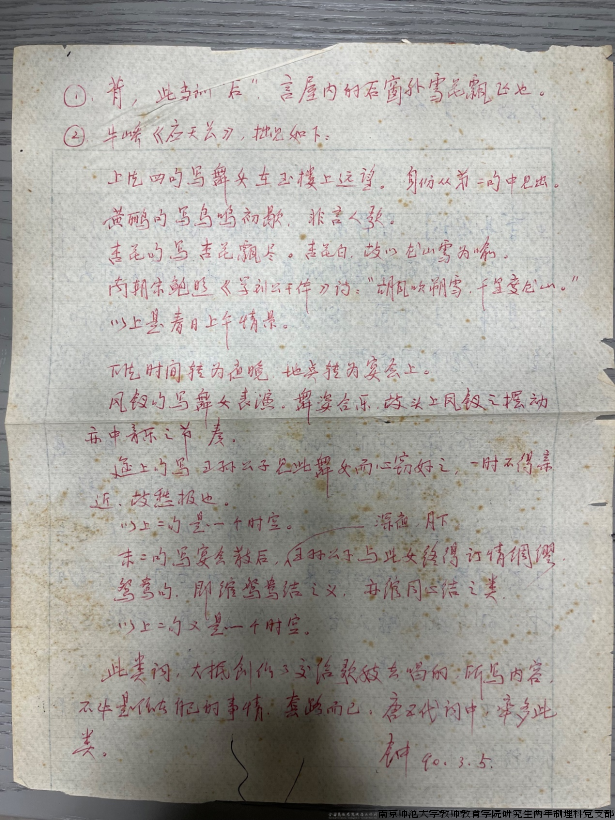 ①. 背,此当训"后",言屋内的后窗外雪花飘飞也。
②. 牛峤《应天长》,拙见如下:
上片四句写舞女在玉楼上远望。身份从第二句中见出。
黄鹂句写鸟鸣初歇,非言人歌。
杏花句写杏花飘尽。杏花白,故以龙山雪为喻。
南朝宋鲍照《学刘公干体》诗:"胡风吹朔雪,千里度龙山。"
以上是春日上午情景。
下片时间转为夜晚,地点转为宴会上。
凤钗句写舞女表演,舞姿合乐,故头上凤钗之摆动
亦中音乐之节奏。
筵上句写王孙公子见此舞女而心窃好之,一时不得亲
近,故愁极也。
以上二句是一个时空。
深夜 月下
末二句写宴会散后,王孙公子与此女终得订情绸缪
鸳鸯句,即绾鸳鸯结之义,亦绾同心结之类
以上二句又是一个时空。
此类词,大抵创作了交给歌妓去唱的,所写内容,
不必是作者自己的事情,套路而已,唐五代词中,率多此
类。
90.3.5.
南京师范大学教师教育学院研究生两年制理科党支部